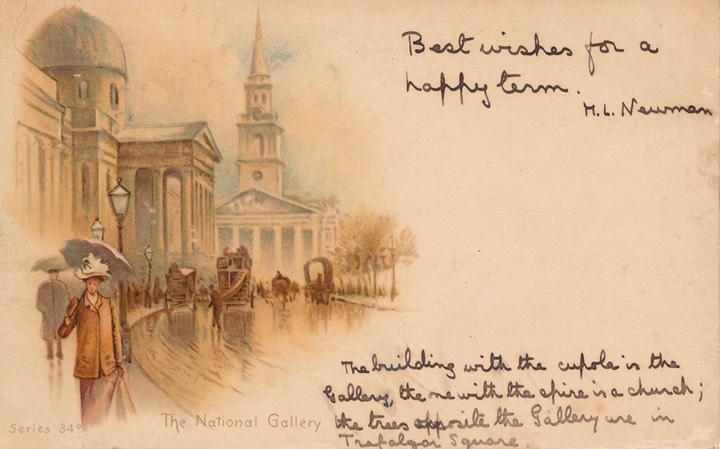 Best wishes for a
happy term.
M. L. Newman
The building with the cupola is the
Gallery, the one with the spire is a church;
the trees opposite the Gallery are in
Trafalgar Square.
The National Gallery
Series 34